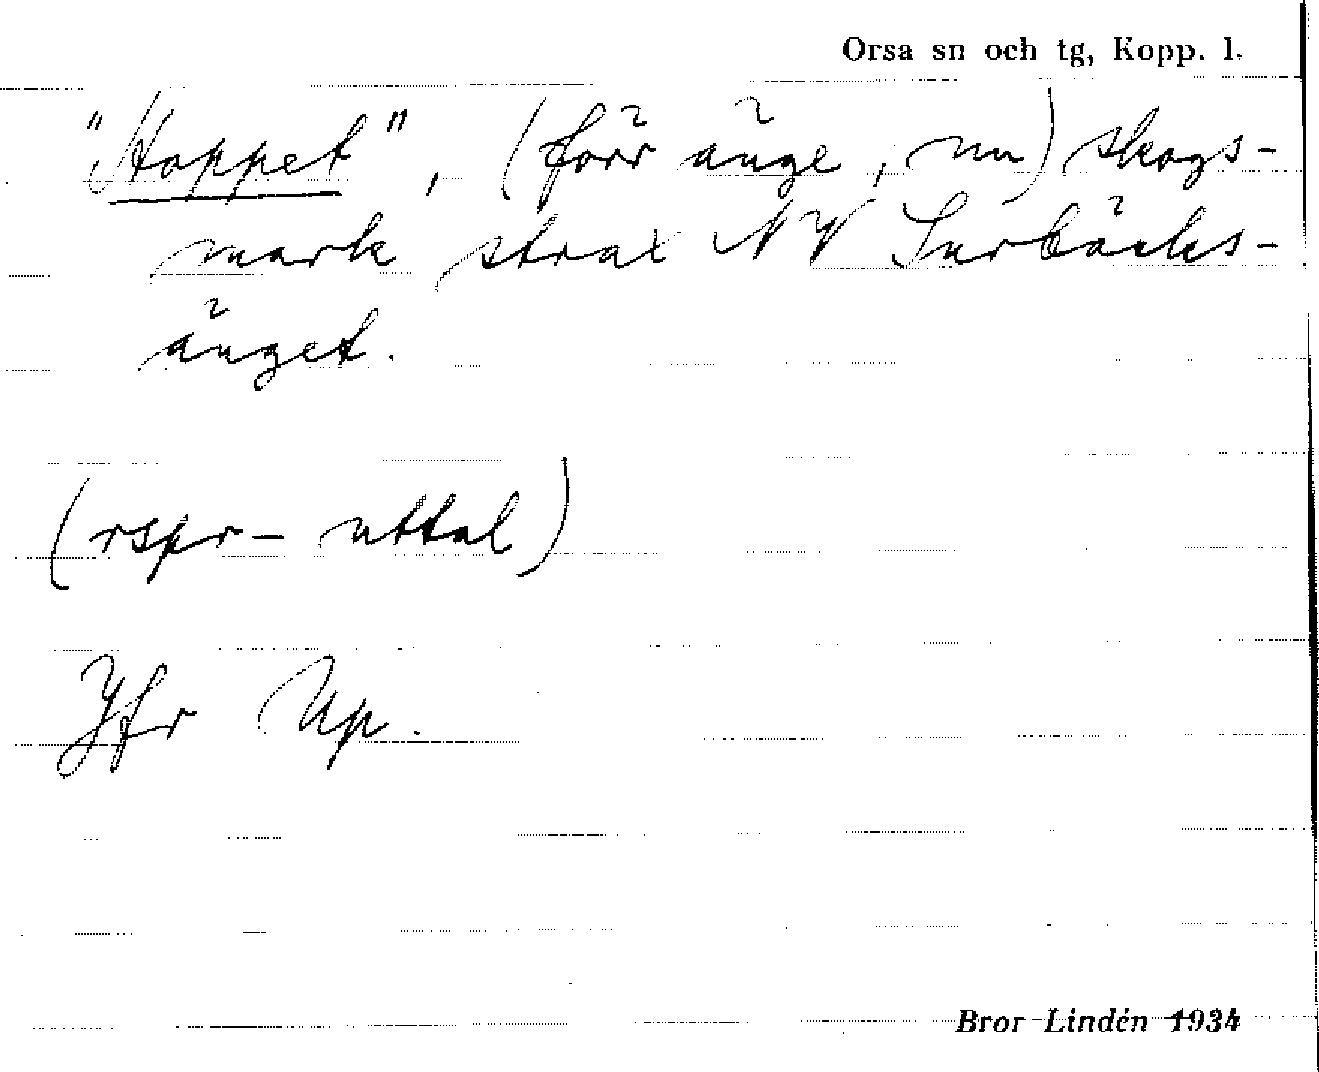 Orsa sn och tg, Kopp. l.
"Hoppet", (förr änge, nu) skogs-
mark strax NV Surbäcks-
änget.
(rspr- uttal)
Jfr Up.
Bror Lindén 1934